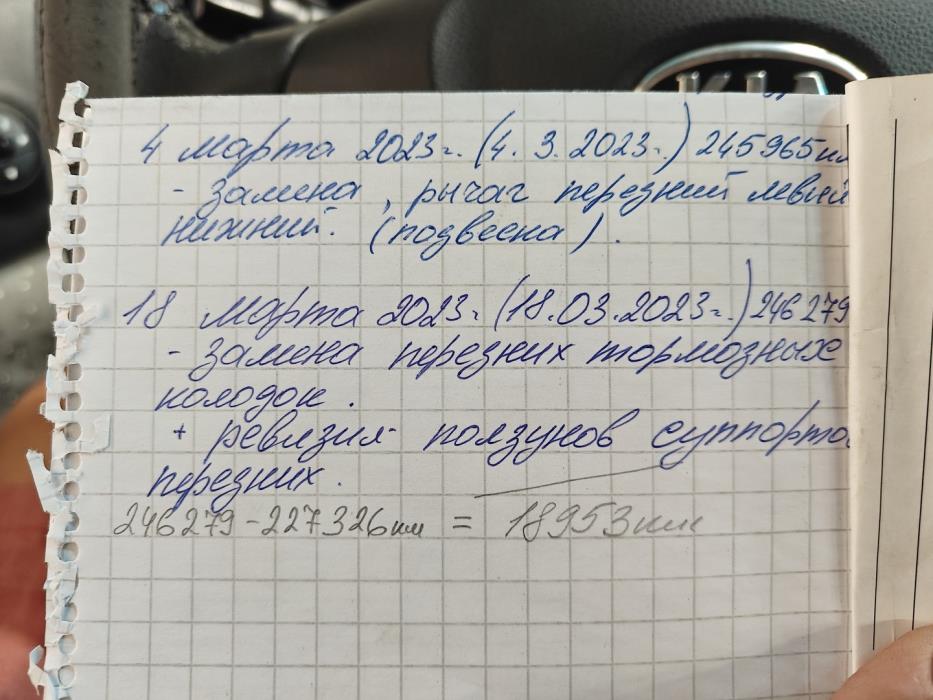 KIA
4 марта 2023г. (4. 3. 2023г.) 245965км
- замена, рычаг передний левый
нижний. (подвеска).
18 марта 2023г. (18.03.2023г.) 246279
- замена передних тормозных
колодок.
+ ревизия ползунов суппорто
передних.
246279-227326км = 18953км